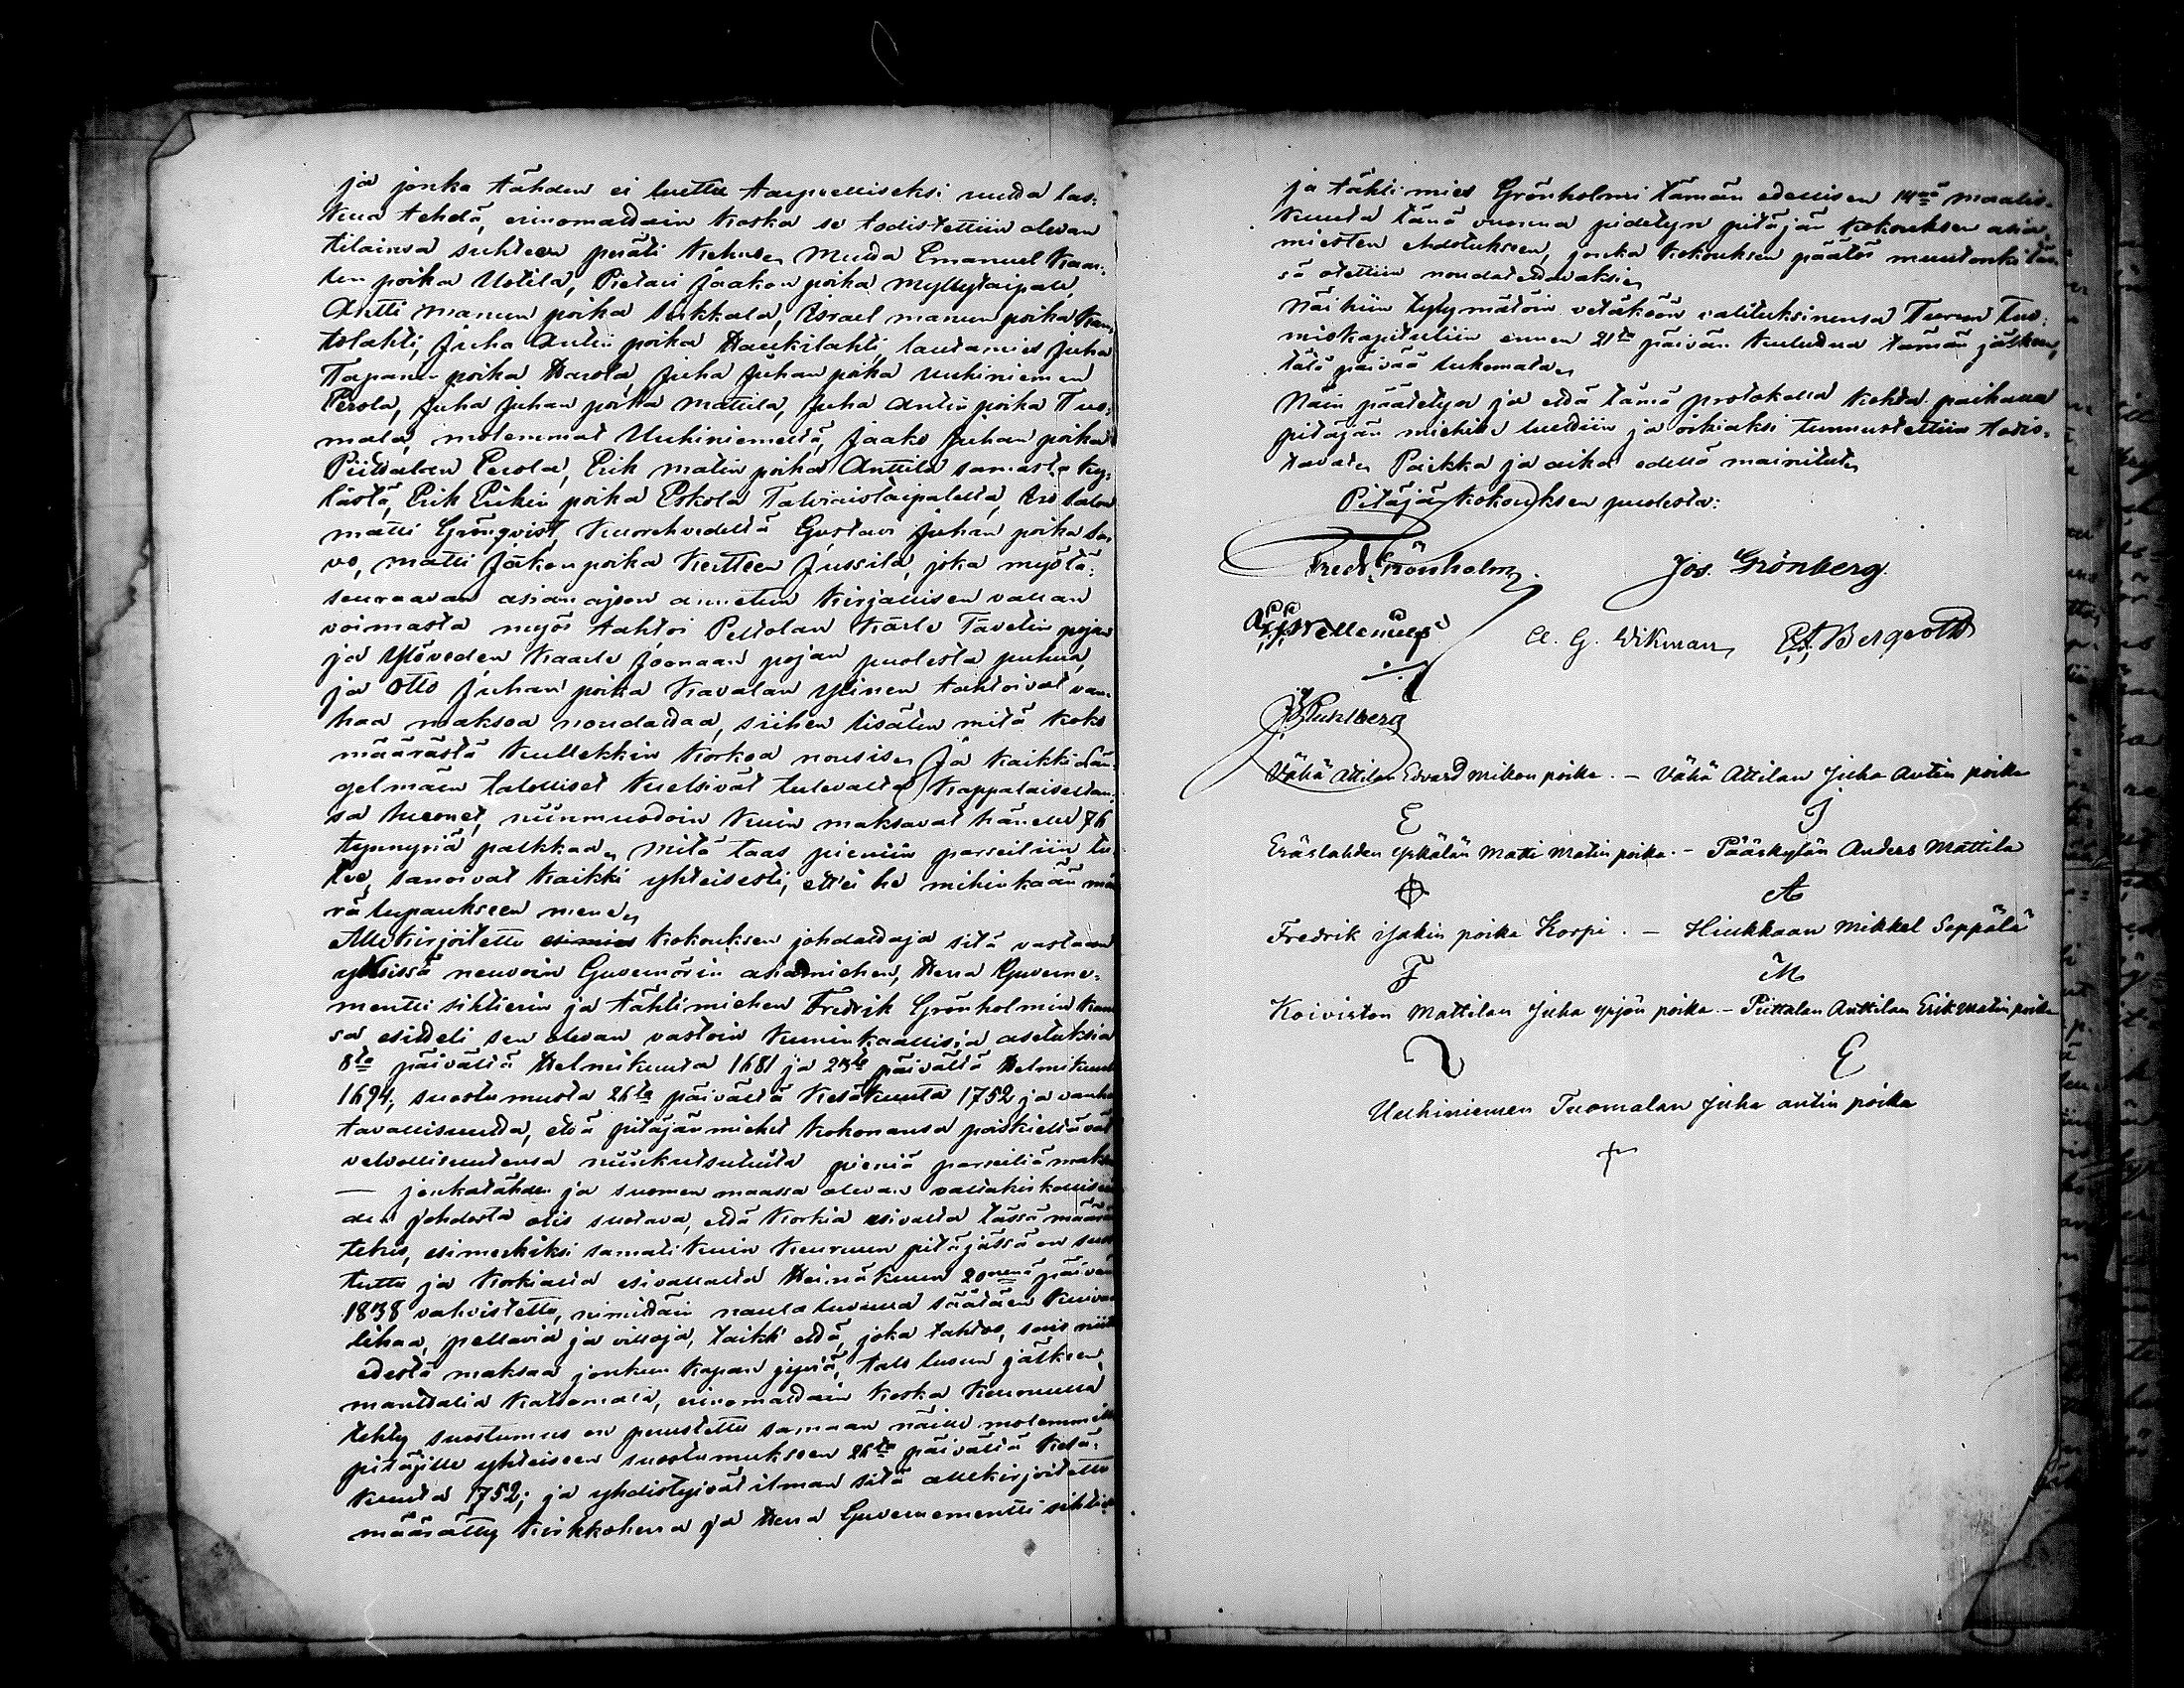 ja jonka tähden ei luettu tarpeelliseksi uutta las-
kua tehdä, erinomattain koska se todistettiin olevan
tilainsa suhteen peräti kehno. Mutta Emanuel Kaar-
len poika Uotila, Pietari Jaakon poika Myllytaipale,
Antti Manun poika Sikkala, Israel Manun poika
tolahti, Juha Antin poika Haukilahti, lautamies Juha
Tapanin poika Harola, Juha Juhan poika Uuhiniemen
Perola, Juha Juhan poika Mattila, Juha Antin poika Tuo-
mala, molemmat Uuhiniemeltä, Jaako Juhan poika
Piittalan Perola, Erik Matin poika Anttila samasta ky-
lästä, Erik Erikin poika Eskola Talviaistaipaleelta,
Matti Grönqvist, Kuorehvedeltä Gustavi Juhan poika
vo, Matti Jakon poika Keitteen Jussila, joka myötä-
seuraavan asianajoon annetun kirjallisen vallan
voimasta myös tahtoi Peltolan Kaarle Tavetin pojan
ja Ylöveden Kaarle Joonaan pojan puolesta puhua,
ja Otto Juhan poika Kavalan Ylinen tahtoivat van-
haa maksoa noudattaa, siihen lisäten mitä koko
määrästä kullekkin korkoa nousis. Ja kaikki Län-
gelmäen talolliset kielsivät tulevalta Kappalaiseltan-
sa huonet, niinmuodoin kuin maksavat hänelle 76
tynnyriä palkkaa. Mitä taas pieniin parseiliin tu-
lee, sanoivat kaikki yhteisesti, ettei he mihinkään mää
rä lupaukseen mene.
Allekirjoitettu esimies kokouksen johdattaja sitä vastaan
yksissä neuvoin Guvernörin asiamiehen, Herra Guverne-
mentti sihtierin ja tähtimiehen Fredrik Grönholmin kans
sa esitteli sen olevan vastoin kuninkaallisia asetuksia
8ta päivältä Helmikuuta 1681 ja päivältä Helmikuuta
1694, suostumusta 26ta päivältä Kesäkuuta 1752 ja vanha
tavallisuutta, että pitäjänmiehet kokonansa poiskieltävät
velvollisuutensa niinkutsutuita pieniä parseiliä maksa
— jonkatähden ja Suomen maassa olevan
den johdosta olis suotava, että korkia esivalta tässä määrän
tekis, esimerkiksi samati kuin Keuruun pitäjässä on suos
tuttu ja korkialta esivallalta Heinäkuun 20nenä päivänä
1838 vahvistettu, nimittäin naula luvulla säätäen kuivaa
lihaa, pellavia ja villoja, taikk että, joka tahtoo, sais niitten
edestä maksaa jonkun kapan jyviä, talo luvun jälkeen,
manttalia katsomata, erinomattain koska Keuruulla
tehty suostumus on perustettu samaan näille molemmille
pitäjille yhteiseen suostumukseen 26ta päivältä Kesä-
kuuta 1752; ja yhdistyivät ilman sitä allekirjoitettu
määrätty Kirkkoherra ja Herra Guvernementti sihtieri
ja tähtimies Grönholmi tämän edellisen 14nä Maalis-
kuuta tänä vuonna pidetyn pitäjän kokouksen asia-
miesten ehdotukseen, jonka kokouksen päätös muutonki täs
sä otettiin noudatettavaksi.
Näihiin tytymätöin vetäköön valituksinensa Turun Tuo-
miokapituliin ennen 21ta päivän kuluttua tämän jälkeen,
tätä päivää lukemata.
Näin päätetyn ja että tämä protokolla kohta paikalla
pitäjän miehille luettiin ja oikiaksi tunnustettiin todis-
tavat. Paikka ja aika edellä mainitut.
Pitäjän kokouksen puolesta:
Fredr. Grönholm. Jos. Grönberg.
Wellenius
A. G. Wikman, Ad. Bergroth

Vähä Attilan Edvard Mikon poika. — Vähä Attilan Juha Antin poika
E J
Eräslahden Ypkälän Matti Matin poika. — Pääskylän Anders Mattila
A
Fredrik Isakin poika Korpi. — Hiukkaan Mikkel Seppälä
F M
Koiviston Mattilan Juha Yrjön poika — Piittalan Anttilan Erik Matin poika
E
Uuhiniemen Tuomalan Juha Antin poika